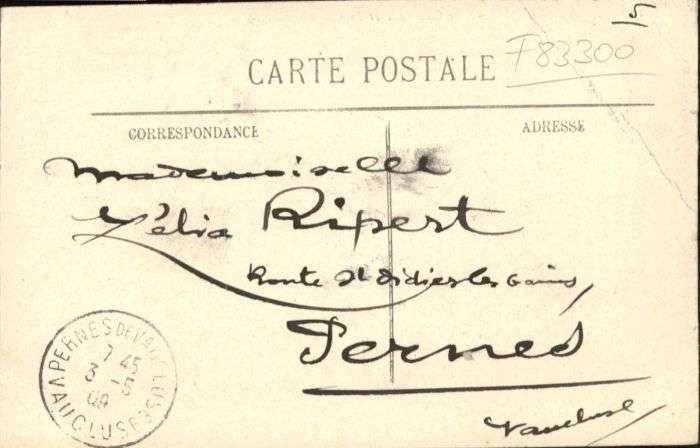 5
F83300
CARTE POSTALE
CORRESPONDANCE
ADRESSE
Mademoiselle
Zélia Ripert
Route St Didier les Bains,
Pernes
Vaucluse
PERNES DE VAUCLUSE
7 45
3 - 3
09
VAUCLUSE